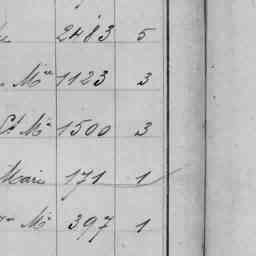 2483 5
Mce 1123 3
Ct Me 1500 3
Marie 171 1
Me 397 1